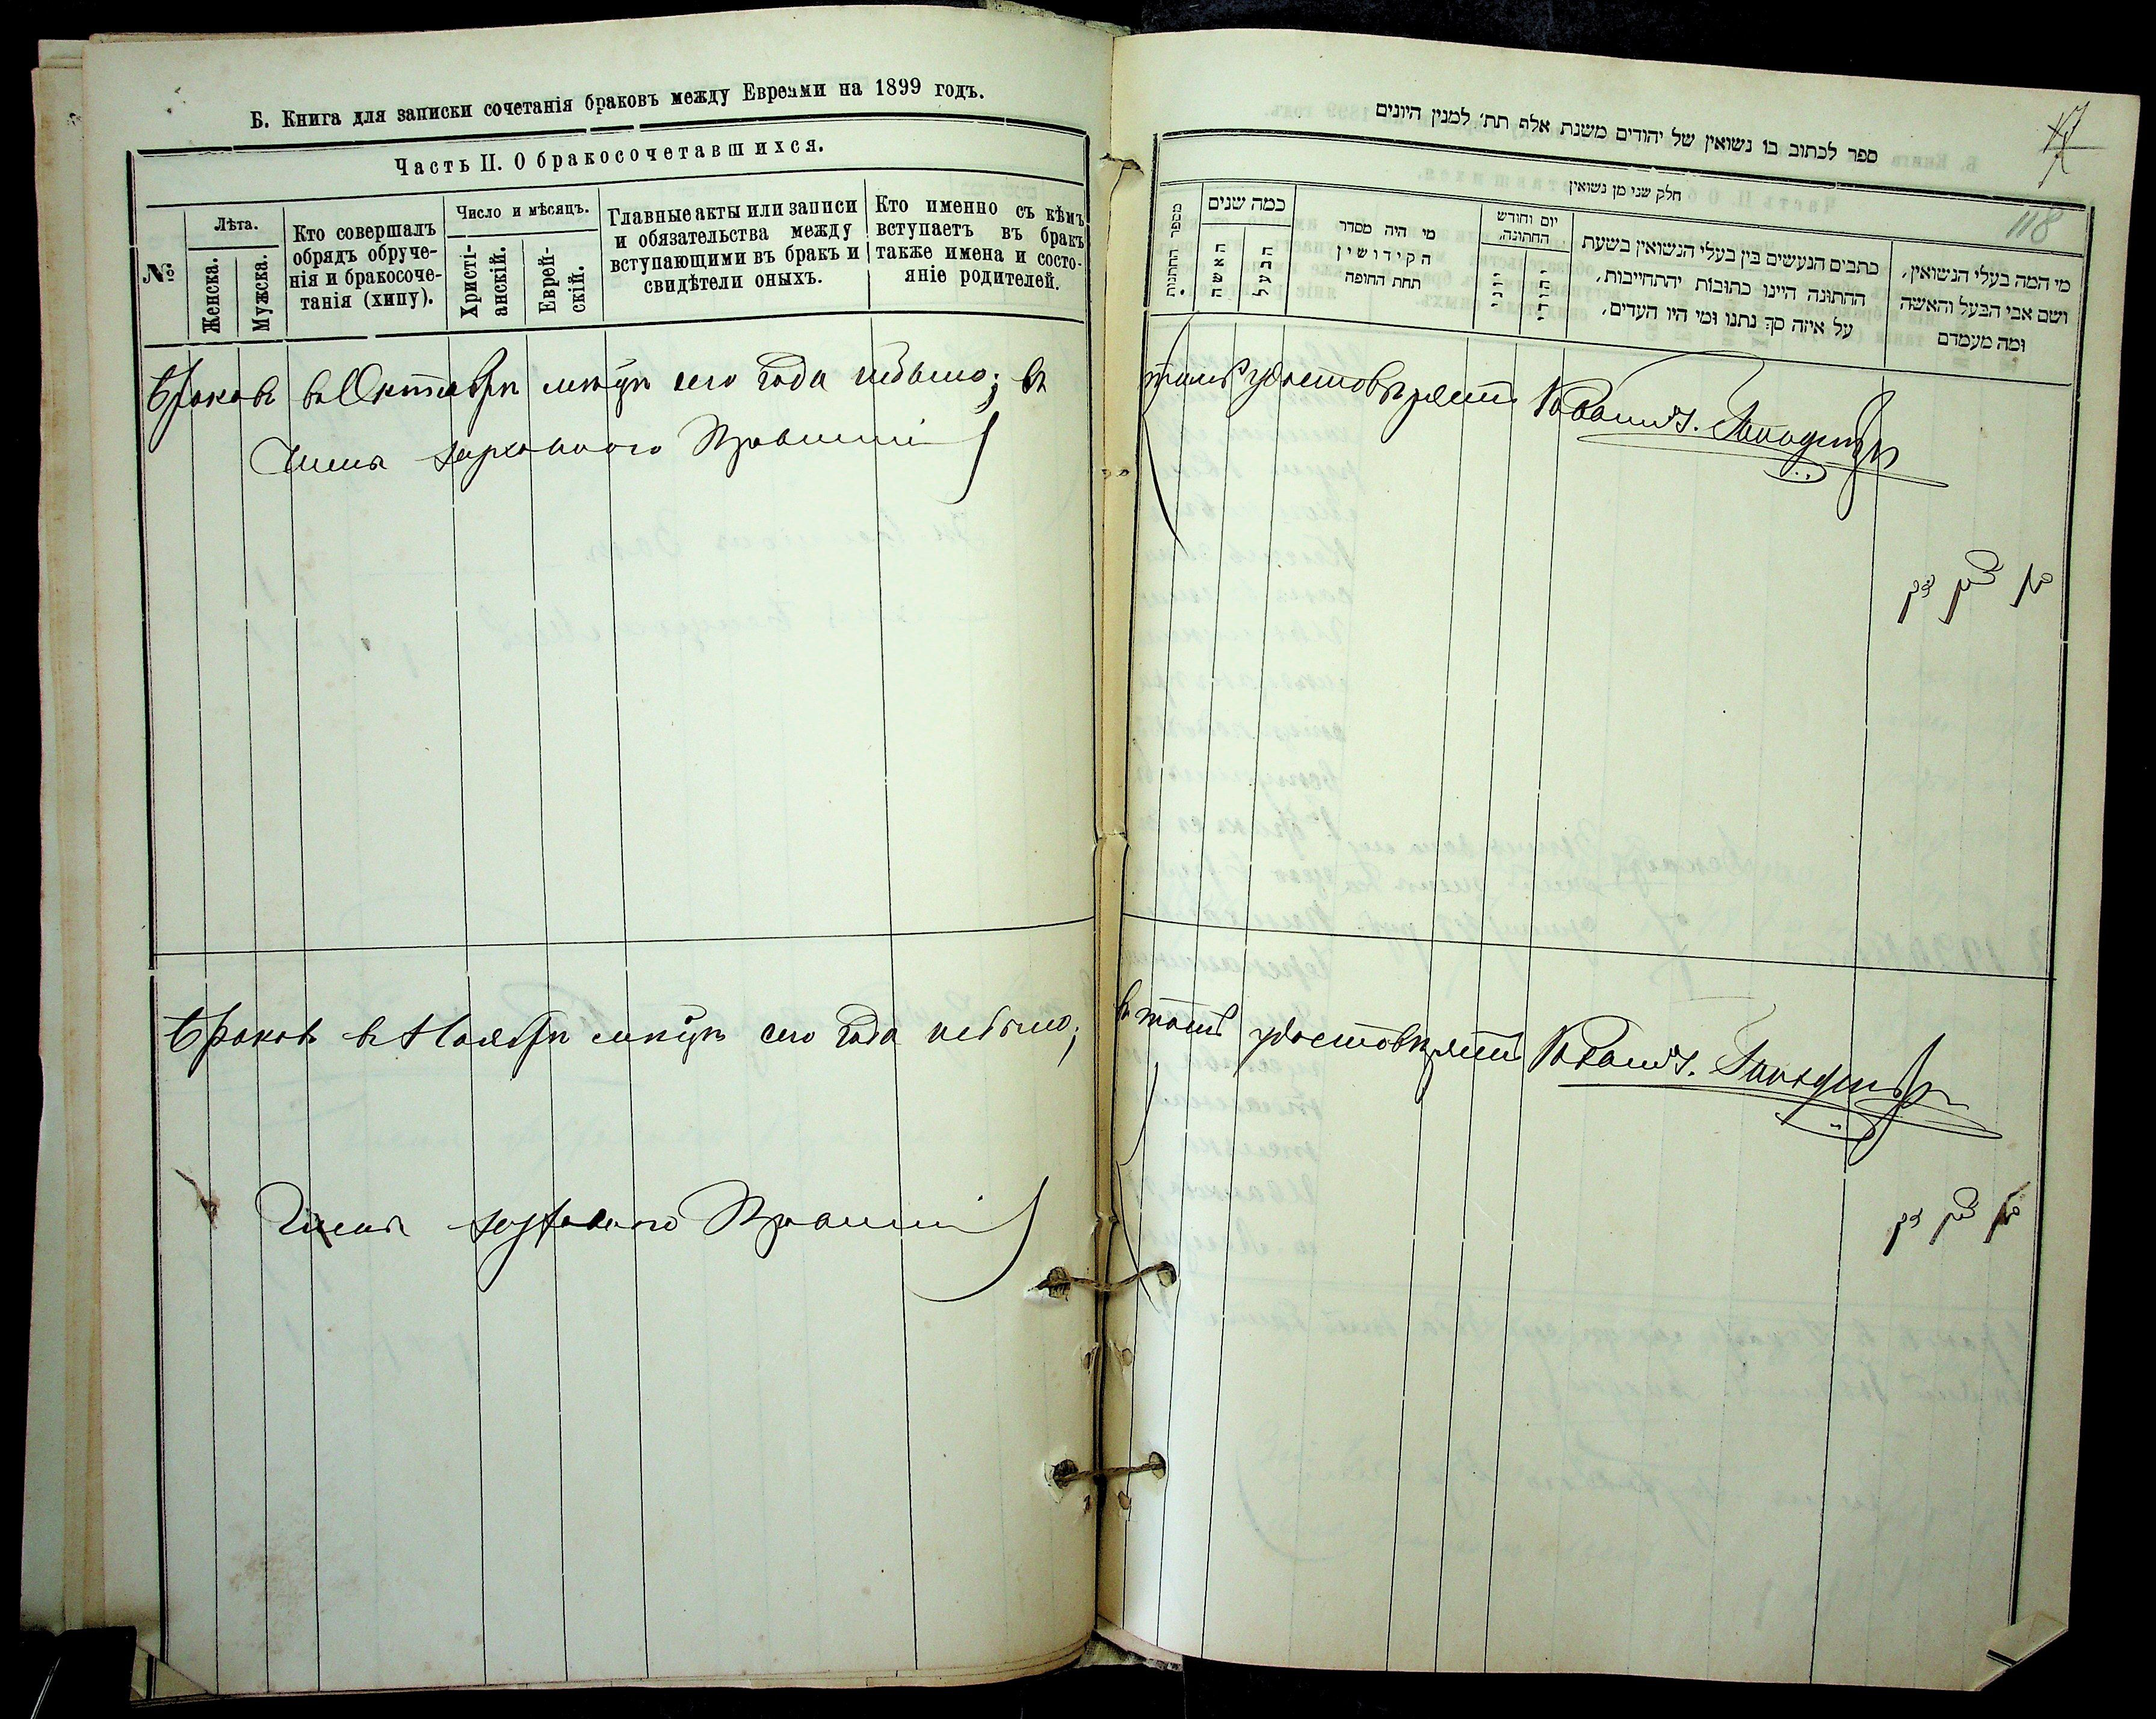 Б. Книга для записки сочетанія браковъ между Евреями на 1899 годъ.
Часть II. О бракосочетавшихся.
№
Лѣта.
Женска.
Мужска.
Кто совершалъ
обрядъ обруче-
нія и бракосоче-
танія (хипу).
Число и мѣсяцъ.
Христі-
анскій.
Еврей-
скій.
Главные акты или записи
и обязательства между
вступающими въ бракъ и
свидѣтели оныхъ.
Кто именно съ кѣмъ
вступаетъ въ бракъ
также имена и состо-
яніе родителей.
Браковъ въ Октябрѣ мѣсяцѣ сего года небыло; въ
Члены духовнаго Правленія
Браковъ въ Ноябрѣ мѣсяцѣ сего года небыло;
Члены духовнаго Правленія
ספר לכתוב בו נשואין של יהודים משנת אלף תת׳ למנין היונים
118
חלק שני מן נשואין
מספר החתונות
כמה שנים
האשה
הבעל
מי היה מסדר
הקידושין
תחת החופה
יום וחודש
החתונה,
יוני
יהודי
כתבים הנעשים בין בעלי הנשואין בשעת
החתונה היינו כתובות יהתחייבות,
על איזה סך נתנו ומי היו העדים,
מי המה בעלי הנשואין,
ושם אבי הבעל והאשה
ומה מעמדם
томъ удостовѣряетъ Раввинъ
въ томъ удостовѣряетъ Раввинъ